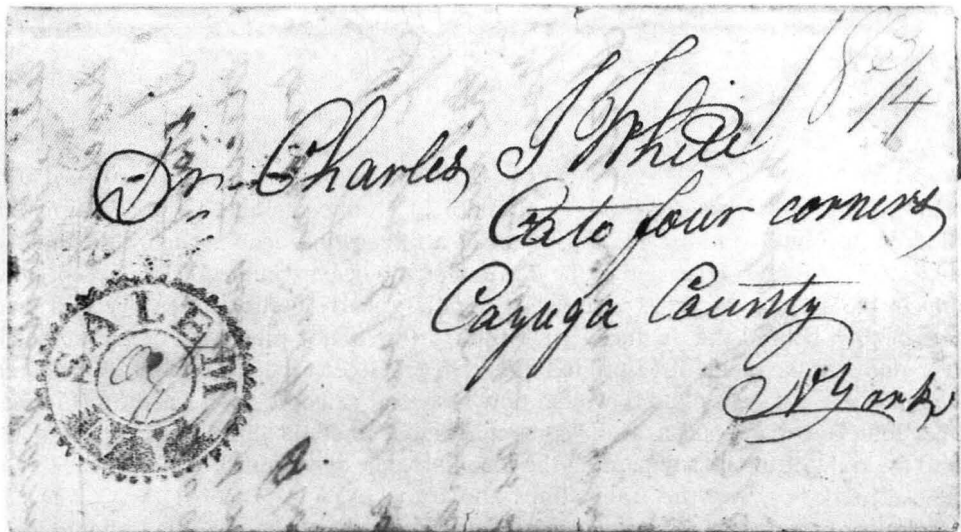 18 3/4
Dr. Charles J White
Cato four corners
Cayuga County
N York
SALEM
NY